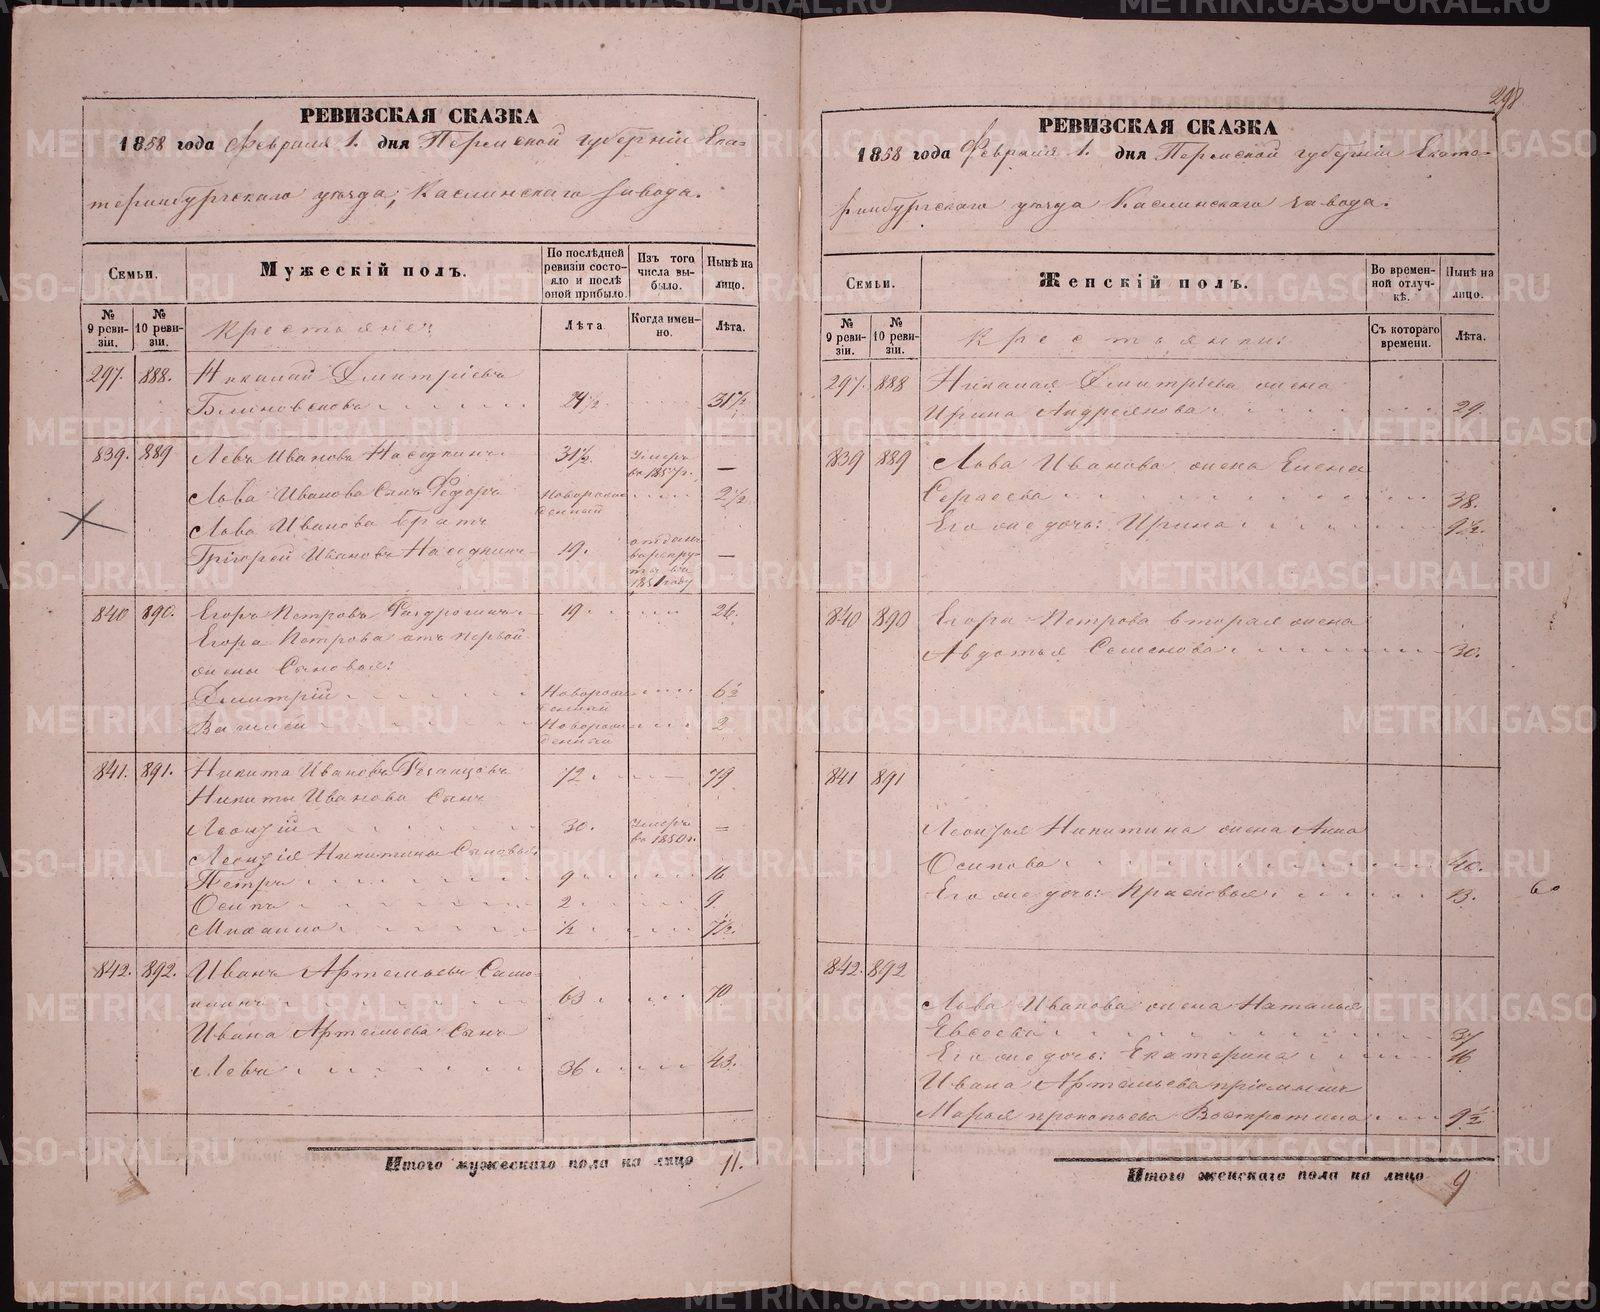 РЕВИЗСКАЯ СКАЗКА
1858 года Февраля 1. дня Пермской губерніи Ека-
теринбургскаго уѣзда, Каслинскаго завода.
Семьи.
Мужескій полъ.
По послѣдней ревизіи состояло и послѣ оной прибыло.
Изъ того числа выбыло.
Нынѣ на лицо.
№ 9 ревизіи.
№ 10 ревизіи.
Крестьяне:
Лѣта
Когда именно.
Лѣта.
297. 888. Николай Дмитріевъ
24½ 31½
839. 889 Левъ Ивановъ Наседкинъ 31½. Умеръ въ 1857 г. —
Льва Иванова Сынъ Ѳедоръ Новорожденный 2½
Льва Иванова братъ
Григорей Ивановъ Наседкинъ 19. отданъ въ рекруты въ 1851 году —
840 890. Егоръ Петровъ 19 26.
Егора Петрова отъ первой
жены Сыновья:
Дмитрій Новорожденный 6½
Василей Новорожденный 2
841. 891. Никита Ивановъ 72 79
Никиты Иванова Сынъ
Леонтій 30. Умеръ въ 1850 г. =
Леонтія Никитина Сыновья:
Петръ 9 16
Осипъ 2 9
Михаило ½ 7½.
842. 892. Иванъ Артемьевъ
63 70
Ивана Артемьева Сынъ
Левъ 36 43.
Итого мужескаго пола на лицо 11.
298
РЕВИЗСКАЯ СКАЗКА
1858 года Февраля 1. дня Пермской губерніи Екате-
ринбургскаго уѣзда Каслинскаго завода.
Семьи.
Женскій полъ.
Во временной отлучкѣ.
Нынѣ на лицо.
№ 9 ревизіи.
№ 10 ревизіи.
Крестьянки:
Съ котораго времени.
Лѣта.
297. 888 Николая Дмитріева жена
Ирина Андреянова 29.
839 889 Льва Иванова жена Елена
Сергаева 38.
Его же дочь: Ирина 9½.
840 890 Егора Петрова вторая жена
Авдотья Семенова 30.
841 891
Леонтья Никитина жена Анна
Осипова 40.
Его же дочь: Прасковья 13.
842. 892
Льва Иванова жена Наталья
Евсеева 37
Его же дочь: Екатерина 16
Ивана Артемьева пріемышъ
Марья Прокопьева Востротина 9½
Итого женскаго пола на лицо 9
METRIKI.GASO-URAL.RU